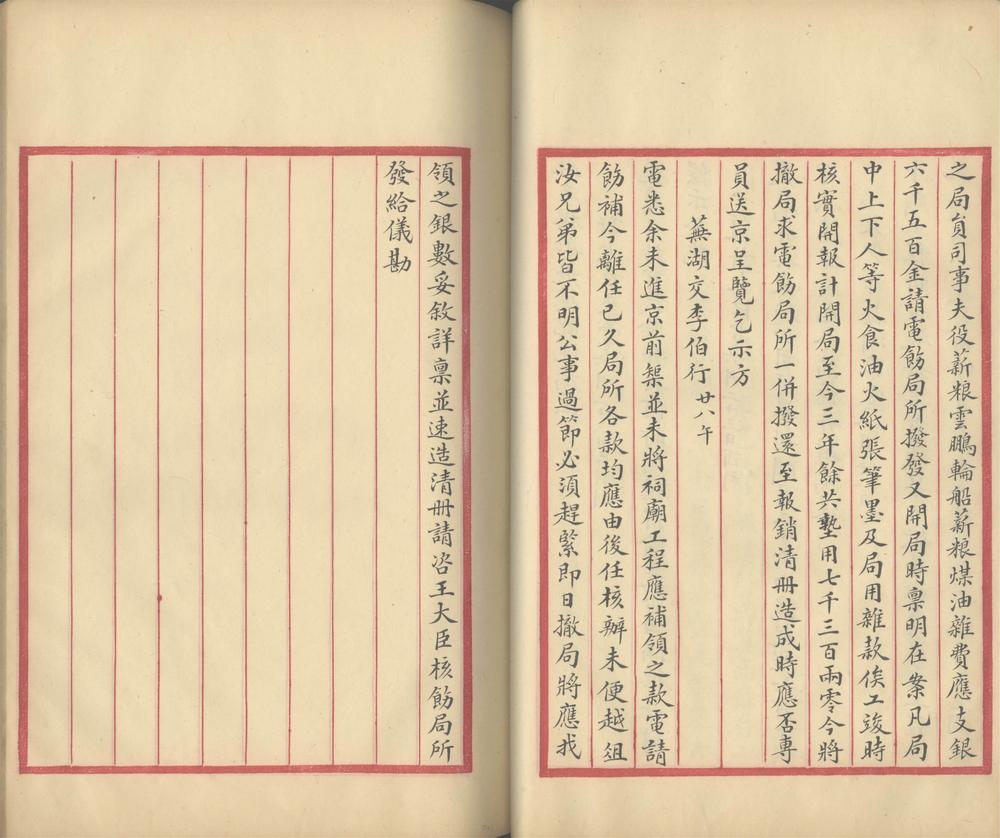 之局員司事夫役薪粮雲鵬輪船薪粮煤油雜費應支銀
六千五百金請電飭局所撥發又開局時稟明在案凡局
中上下人等火食油火紙張筆墨及局用雜款俟工竣時
核實開報計開局至今三年餘共墊用七千三百兩零今將
撤局求電飭局所一併撥還至報銷清冊造成時應否專
員送京呈覽乞示方
蕪湖交李伯行 廿八午
電悉余未進京前槩並未將祠廟工程應補領之款電請
飭補今離任已久局所各款均應由後任核辦未便越俎
汝兄弟皆不明公事過節必須趕緊即日撤局將應找
領之銀數妥敘詳稟並速造清冊請咨王大臣核飭局所
發給儀勘